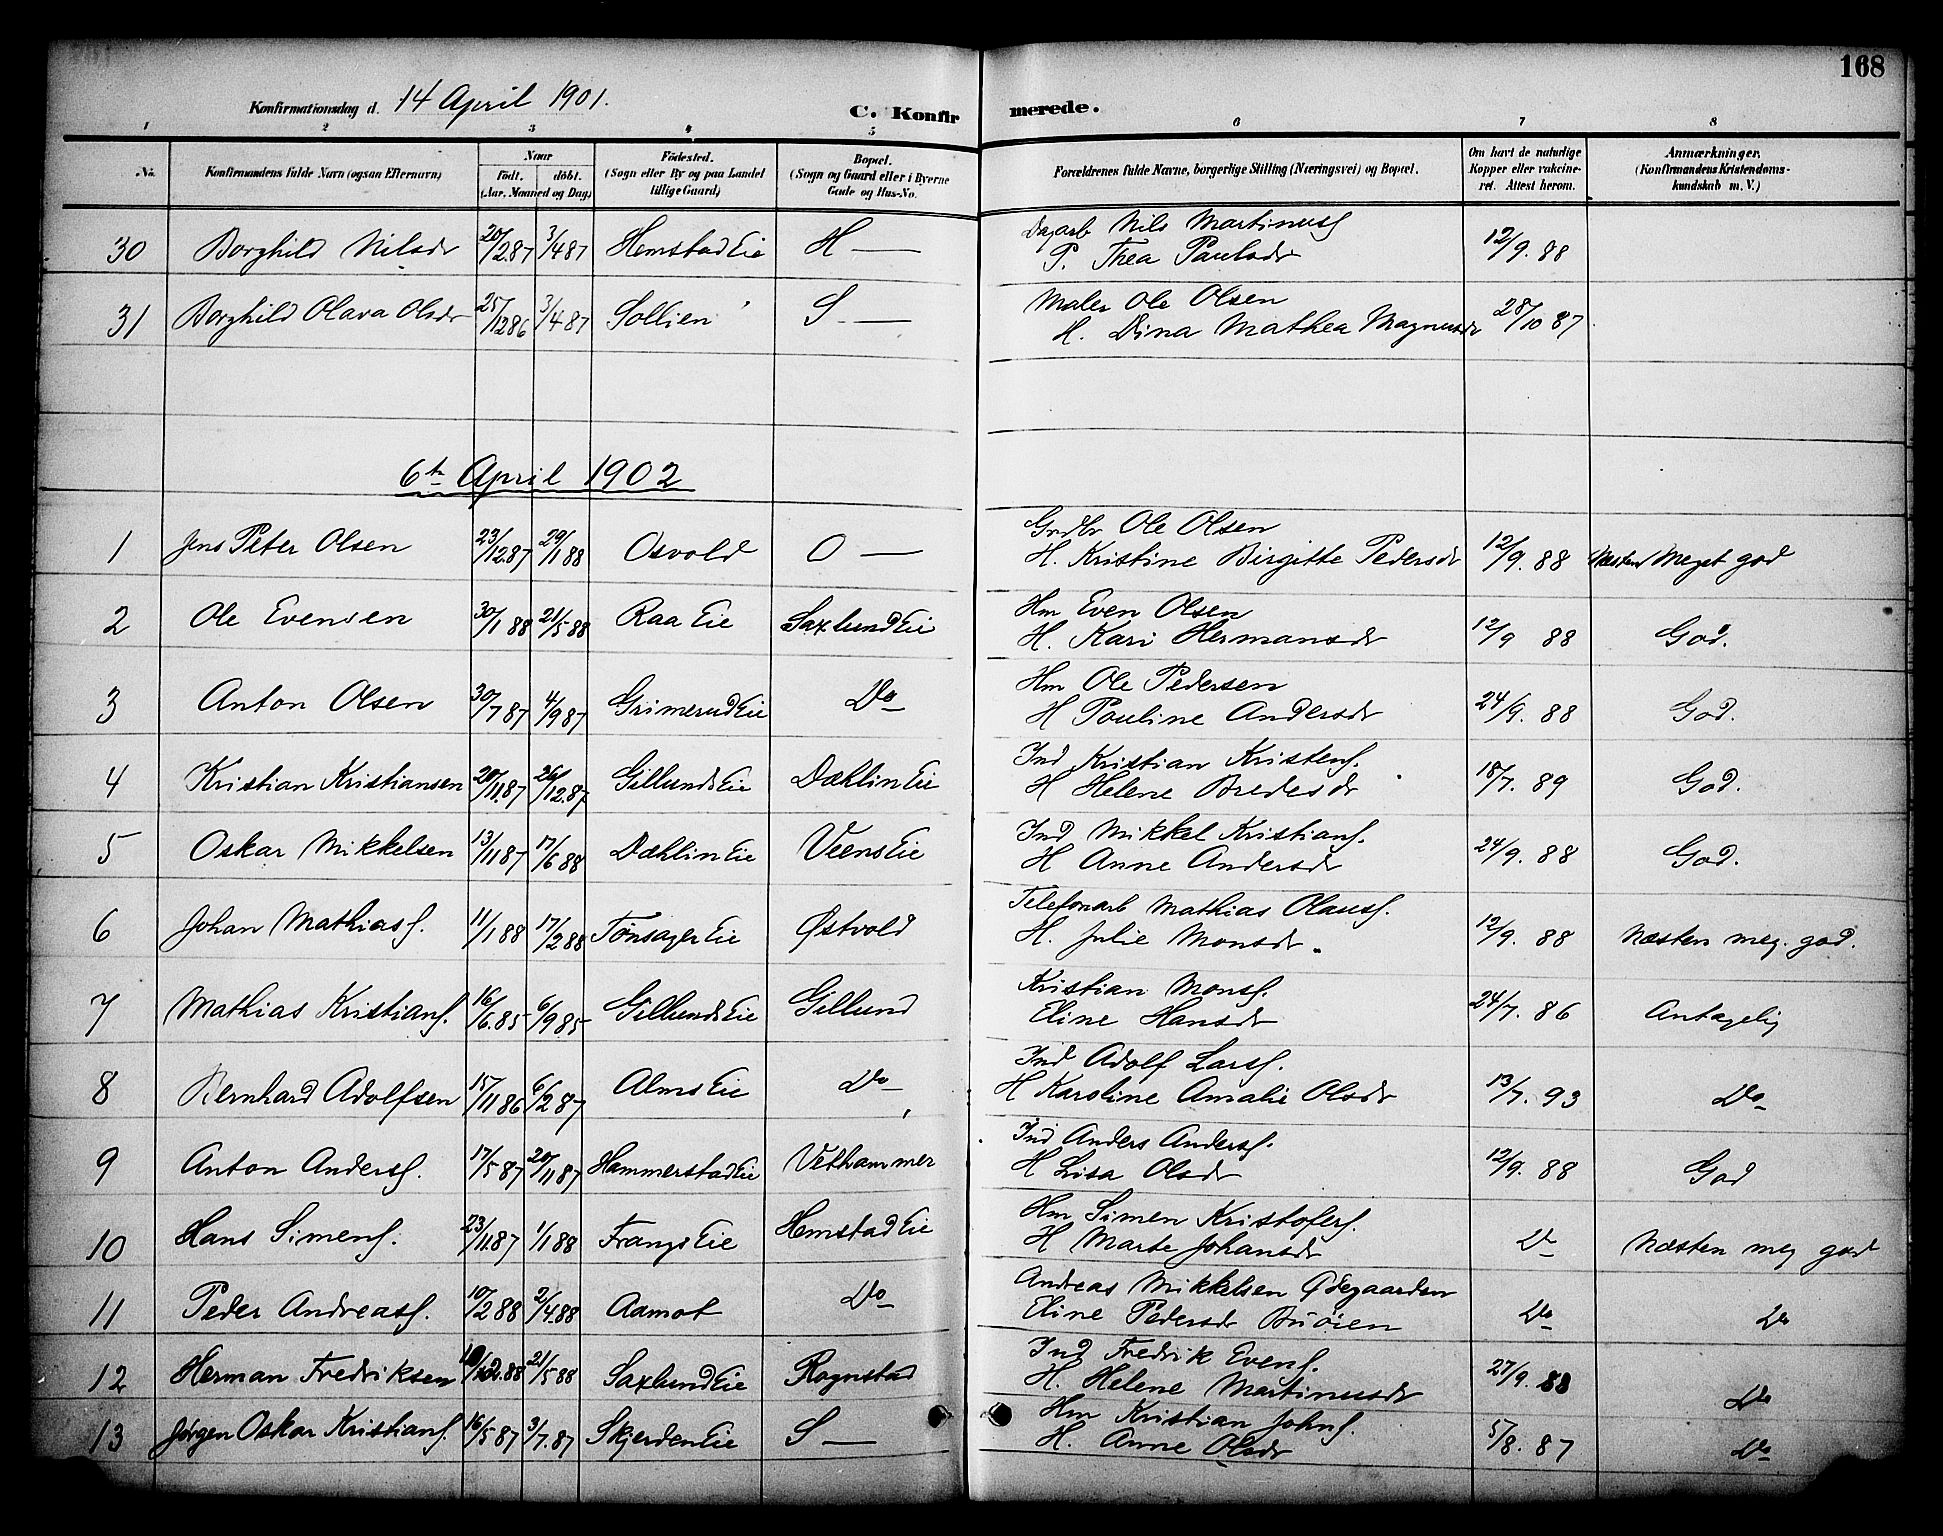 168
Konfirmationsdag d. 14 April 1901.
C. Konfirmerede.
1 2 3 4 5 6 7 8
No. Konfirmandens fulde Navn (ogsaa Efternavn) Naar født. døbt. (Aar, Maaned og Dag) Fødested. (Sogn eller By og paa Landet tillige Gaard) Bopæl. (Sogn og Gaard eller i Byerne Gade og Hus-No. Forældrenes fulde Navne, borgerlige Stilling (Næringsvei) og Bopæl. Om havt de naturlige Kopper eller vakcineret. Attest herom. Anmærkninger. (Konfirmandens Kristendomskundskab m. V.)
30 Borghild Nilsdr 20/2.87 3/4 87 Hemstad Eie H — Dagarb Nils Martinusf 12/9. 88
P. Thea Paulsdr
31 Borghild Olava Olsdr 25/12 86 3/4 87 Sollien S — Maler Ole Olsen 28/10 87
H. Dina Mathea Magnusdr
6te April 1902
1 Jens Peter Olsen 23/12.87 29/1 88 Osvold O — Grdbr Ole Olsen 12/9. 88 Næsten Meget god
H. Kristine Birgitte Pedersdr
2 Ole Evensen 30/1 88 21/5 88 Raa Eie Saxlund Eie Hm Even Olsen 12/9 88 God.
H. Kari Hermansdr
3 Anton Olsen 30/7 87 4/9 87 Grimerud Eie Do Hm Ole Pedersen 24/9. 88 God.
H Pauline Andersdr
4 Kristian Kristiansen 20/11.87 26/12.87 Gillunds Eie Dæhlin Eie Ind Kristian Kristenf. 18/7. 89 God.
H Helene Bredesdr
5 Oskar Mikkelsen 13/11 87 17/6 88 Dæhlin Eie Veens Eie Ind Mikkel Kristianf. 24/9. 88 God.
H Anne Andersdr
6 Johan Mathiasf. 11/1 88 17/2 88 Tønsager Eie Østvold Telefonarb Mathias Olausf. 12/9. 88 Næsten meg. god.
H. Julie Monsdr.
7 Mathias Kristianf. 16/6.85 6/9 85 Gillunds Eie Gillund Kristian Monsf. 24/7. 86 Antagelig
Eline Hansdr
8 Bernhard Adolfsen 15/11 86 6/2 87 Alms Eie Do Ind Adolf Larsf. 13/7. 93 Do
H Karoline Amalie Olsdr
9 Anton Andersf. 17/5 87 20/11 87 Hammerstad Eie Vethammer Ind Anders Andersf. 12/9. 88 God
H Lisa Olsdr
10 Hans Simenf. 23/11.87 1/1 88 Frangs Eie Hemstad Eie Hm Simen Kristoferf. Do Næsten meg god
H Marte Johansdr
11 Peder Andreasf. 10/2 88 2/4.88 Aamot Do Andreas Mikkelsen Ødegaarden Do Do
Eline Pedersdr Buøien
12 Herman Fredriksen 2.88 21/5 88 Saxlund Eie Rognstad Ind Fredrik Evenf. 27/9. 88 Do
H. Helene Martinusdr
13 Jørgen Oskar Kristianf. 16/5 87 3/7.87 Skjerden Eie S — Hm Kristian Johnf. 5/8. 87 Do
H. Anne Olsdr